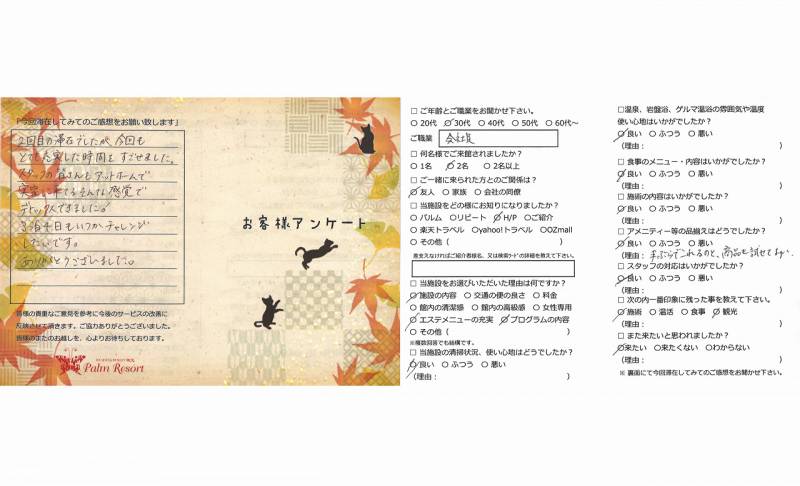 「今回滞在してみてのご感想をお願い致します」
2回目の滞在でしたが、今回も
とても充実した時間をすごせました。
スタッフの皆さんもアットホームで
実家に来てるみたいな感覚で
デトックスできました。
3泊4日もいつかチャレンジ
したいです。
ありがとうございました。
皆様の貴重なご意見を参考に今後のサービスの改善に
反映させて頂きます。ご協力ありがとうございました。
皆様のまたのお越しを、心よりお待ちしております。
Palm Resort
お客様アンケート
□ ご年齢とご職業をお聞かせ下さい。
○ 20代 ○ 30代 ○ 40代 ○ 50代 ○ 60代~
ご職業 会社員
□ 何名様でご来館されましたか?
○ 1名 ○ 2名 ○ 2名以上
□ ご一緒に来られた方とのご関係は?
○ 友人 ○ 家族 ○ 会社の同僚
□ 当施設をどの様にお知りになりましたか?
○ パルム ○リピート ○H/P ○ご紹介
○ 楽天トラベル ○yahoo!トラベル ○OZmall
○ その他( )
差支えなければご紹介者様名、又は検索ワードの詳細を教えて下さい。
□ 当施設をお選びいただいた理由は何ですか?
○ 施設の内容 ○ 交通の便の良さ ○ 料金
○ 館内の清潔感 ○ 館内の高級感 ○ 女性専用
○ エステメニューの充実 ○ プログラムの内容
○ その他( )
※複数回答でも結構です。
□ 当施設の清掃状況、使い心地はどうでしたか?
○ 良い ○ ふつう ○ 悪い
(理由: )
□温泉、岩盤浴、ゲルマ温浴の雰囲気や温度
使い心地はいかがでしたか?
○ 良い ○ ふつう ○ 悪い
(理由: )
□ 食事のメニュー・内容はいかがでしたか?
○ 良い ○ ふつう ○ 悪い
(理由: )
□ 施術の内容はいかがでしたか?
○ 良い ○ ふつう ○ 悪い
(理由: )
□ アメニティー等の品揃えはどうでしたか?
○ 良い ○ ふつう ○ 悪い
(理由: 手ぶらでこれるのと、商品を試せてよい )
□ スタッフの対応はいかがでしたか?
○ 良い ○ ふつう ○ 悪い
(理由: )
□ 次の内一番印象に残った事を教えて下さい。
○ 施術 ○ 温活 ○ 食事 ○ 観光
(理由: )
□ また来たいと思われましたか?
○来たい ○来たくない ○わからない
(理由: )
※ 裏面にて今回滞在してみてのご感想をお聞かせ下さい。